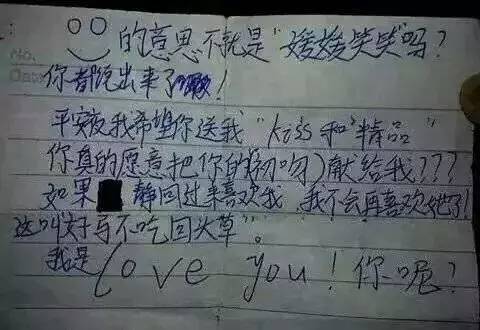 No.
Date
的意思不就是“媛媛笑笑”吗?
你都说出来了!
平安夜我希望你送我“Kiss和“精品”
你真的愿意把你的(初吻)献给我???
如果 静回过来喜欢我,我不会再喜欢她了!
这叫好马不吃回头草”。
我是love you!你呢?